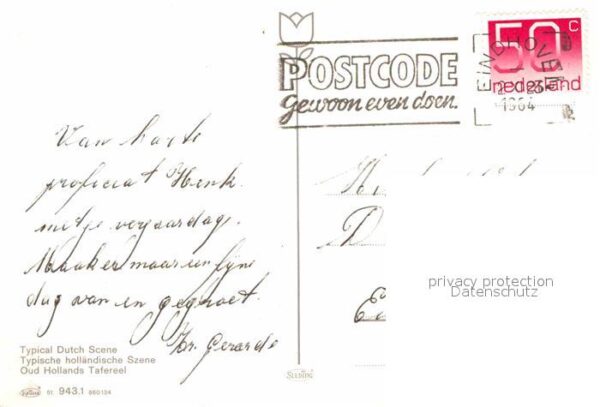 50 c
nederland
POSTCODE
Gewoon even doen.
EINDHOVEN
1984
Van harte
proficiat Henk
metje verjaardag.
Maaker maar een fijne
dag van en gegroet.
Br. Gerardo
privacy protection
Datenschutz
Typical Dutch Scene
Typische holländische Szene
Oud Hollands Tafereel
51 943.1 860134